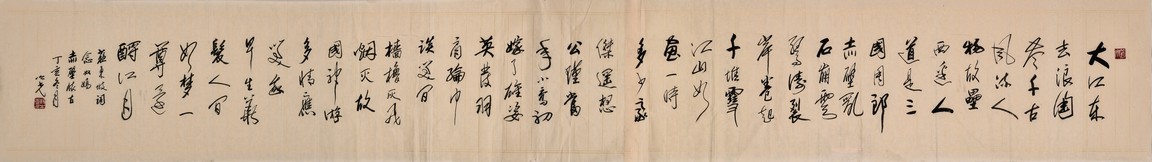 大江东
去浪淘
尽千古
风流人
物故壘
西边人
道是三
國周郎
赤壁乱
石崩雲
驚涛裂
岸卷起
千堆雪
江山如
画一时
多少豪
傑遥想
公瑾當
年小喬初
嫁了雄姿
英发羽
扇纶巾
谈笑间
樯橹灰飞
烟灭故
國神游
多情應
笑我
早生华
髮人间
如梦一
尊还
酹江月
苏东坡词
念奴娇
赤壁怀古
丁亥冬月